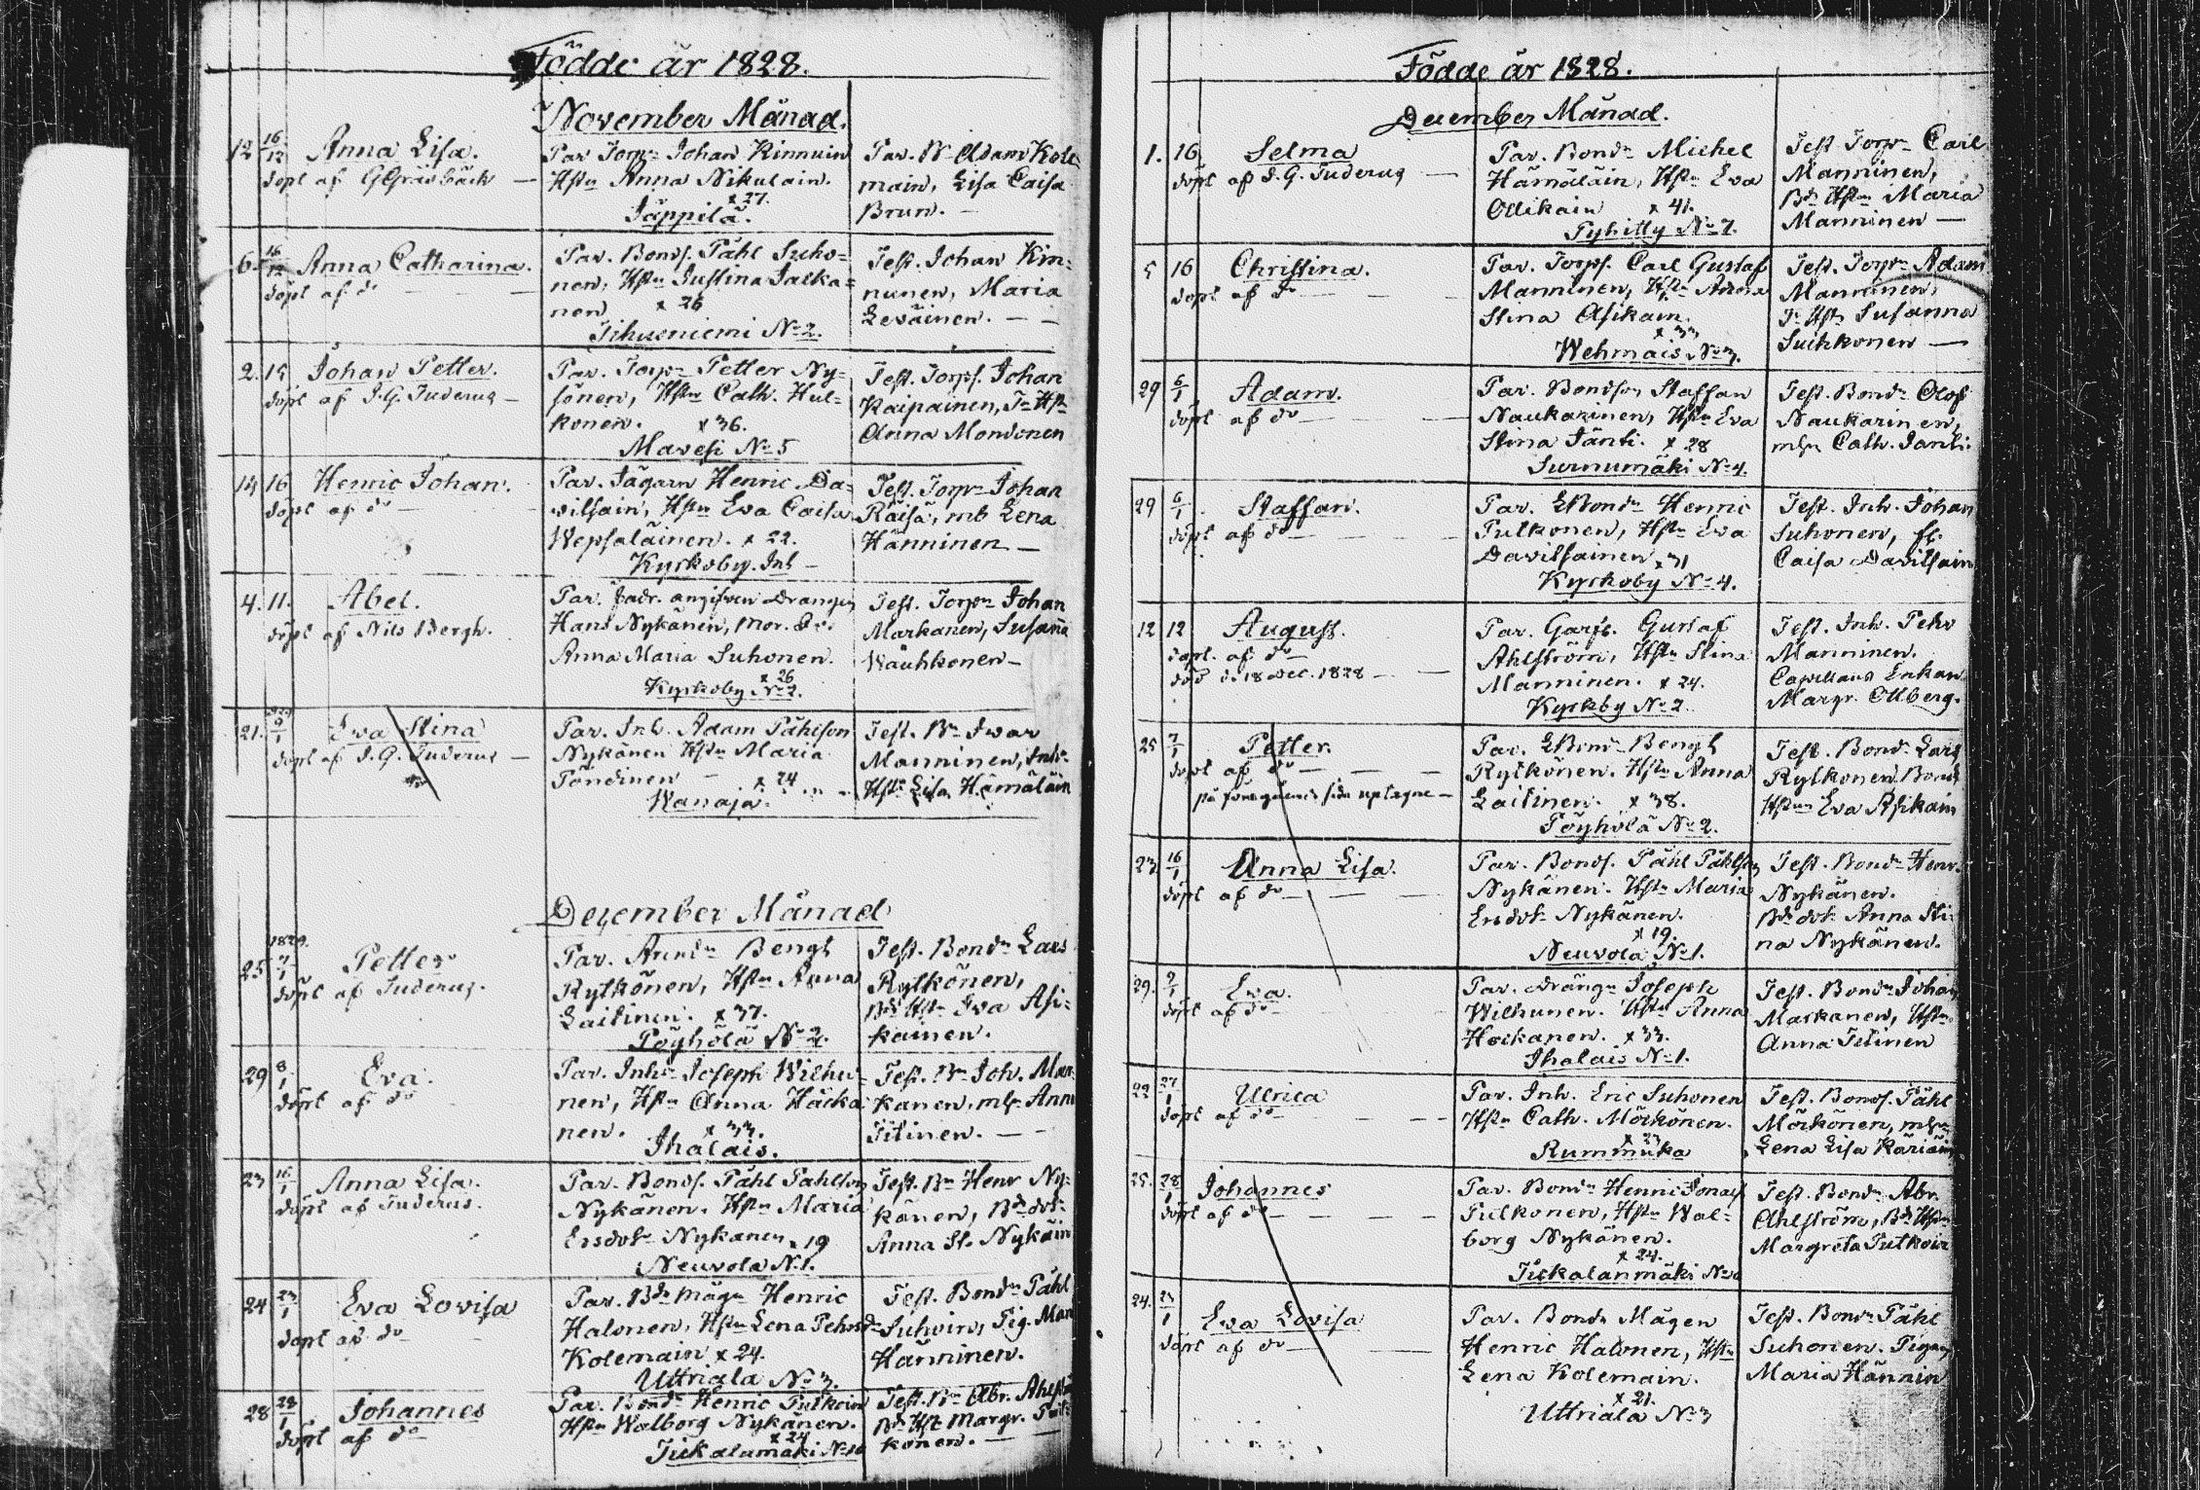 Födde år 1828.
November Månad.
12 16/12 Anna Lisa.
döpt af
Par. Torp. Johan Kinnuin
Hstu Anna Nikulain.
x 27.
Jäppilä.
Tar. Adam Kole
main, Lisa Caisa
Brun. —
6. 16/12 Anna Catharina.
döpt af do
Par. Bonds. Påhl Suho=
nen, Hstu Justina Jalka=
nen x 26
Tihusniemi No 2.
Test. Johan Kin:
nunen, Maria
Leväinen. — —
2. 15 Johan Petter.
döpt af J. G. Tuderus —
Par. Torp. Petter Ny=
sönen, Hstu Cath. Hul=
konen. x 36.
Mavesi No 5
Test. Torps. Johan
Kaipainen, Hstu
Anna Mononen
14 16 Henric Johan.
döpt af do
Par. Jägarn Henric Da=
vilsain, Hstu Eva Caisa
Wepsäläinen. x 22.
Kyrkoby. Inh —
Test. Torp. Johan
Räisä, mb Lena
Hänninen —
4. 11. Abel.
döpt af Nils Bergh.
Par. fadr. angifven Drängen
Hans Nykänen, Mor.
Anna Maria Suhonen.
x 26
Kyrkoby No 2.
Test. Torp. Johan
Markanen, Susanna
Wäuhkonen —
21. 9/1 Eva Stina
döpt af J. G. Tuderus —
Par. Inh. Adam Påhlson
Nykänen Hstu Maria
Pöndinen — x 24
Wanaja.
Test. Bn Ivar
Manninen, Inh.
Hstu Lisa Hämäläin
December Månad
1829.
25 7/1 Petter
döpt af Tuderus.
Par. Bengt
Rytkönen, Hstu Anna
Laitinen. x 37.
Pöyhölä No 2.
Test. Bonden Lars
Rytkönen,
Bd Hstu Eva Asi=
kainen.
29 8/1 Eva.
döpt af do
Par. Inh. Joseph Wilhu=
nen, Hstu Anna Häcka
nen. x 33.
Ihalais.
Test. Bn Joh. Mar
kanen, Anna
Titinen. — —
23 16/1 Anna Lisa.
döpt af Tuderus.
Par. Bonds. Påhl Påhlson
Nykänen. Hstu Maria
Ersdotr Nykänen x 19
Neuvola N.1.
Test. Bn Henr Ny=
känen, Bd dotr
Anna St. Nykäin
24 23/1 Eva Lovisa
döpt af do
Par. Bds mågn Henric
Halonen, Hstu Lena Pehrsd
Kolemain x 24.
Uttriala No 3.
Test. Bonden Påhl
Suhoin, Pig. Mari
Hänninen.
28 28/1 Johannes
döpt af do
Par. Bondn Henric Pulkoin
Hstu Walborg Nykänen.
x 24
Tickalamäki No 10
Test. Bn Abr. Ahlst
Bd Hst Margr. Pul=
konen. —
Födde år 1828.
December Månad.
1. 16 Selma
döpt af J. G. Tuderus —
Par. Bondn Michel
Hämäläin, Hstu Eva
Ollikain x 41.
Pyhitty No 7.
Test Torp. Carl
Manninen,
Bd Hstu Maria
Manninen —
5 16 Christina.
döpt af do
Par. Torps. Carl Gustaf
Manninen, Hstu Anna
Stina Asikain.
x 33
Wehmais No 3.
Test. Torp. Adam
Manninen,
Hstu Susanna
Suihkonen —
29 6/1 Adam.
döpt af do
Par. Bondson Staffan
Naukarinen, Hstu Eva
Stina Jänti. x 28
Surnumäki No 4.
Test. Bondn Olof
Naukarinen,
Cath. Janti.
29 6/1 Staffan.
döpt af do
Par. Bondn Henric
Pulkonen, Hstu Eva
Davilsainen x 31
Kyrkoby No 4.
Test. Inh. Johan
Suhonen, fl.
Caisa Davilsain
12 12 August.
döpt. af do
död d. 18 Dec. 1828 —
Par. Garfv. Gustaf
Ahlström, Hstu Stina
Manninen. x 24.
Kyrkby No 2
Test. Inh. Pehr
Manninen.
Capellans Enkan
Margr. Ollberg.
25 7/1 Petter.
döpt af do
på föregående sida uptagne —
Par. Bond Bengt
Rytkönen. Hstu Anna
Laitinen. x 38.
Pöyhölä No 2.
Test. Bondn Lars
Rytkonen Bond
Hstun Eva Asikain
23 16/1 Anna Lisa.
döpt af do
Par. Bonds. Påhl Påhlson
Nykänen. Hstu Maria
Ersdotr Nykänen.
x 19.
Neuvola No 1.
Test. Bondn Henr.
Nykänen.
Bd dotr Anna Sti=
na Nykänen.
29. 9/1 Eva.
döpt af do
Par. drängn Joseph
Wilhunen. Hstu Anna
Hockanen. x 33.
Ihalais No 1.
Test. Bondn Johan
Markanen, Hstu
Anna Titinen
22 27/1 Ulrica
döpt af do
Par. Inh. Eric Suhonen
Hstu Cath. Mörkönen.
x 23
Rummuka
Test. Bonds. Påhl
Mörkönen,
Lena Lisa Käriäin
25. 28/1 Johannes
döpt af do
Par. Bondn Henric Jonass
Pulkonen, Hstu Wal=
borg Nykänen.
x 24.
Tickalanmäki No 10
Test. Bondn Abr.
Ahlström, Bd Hstu
Margreta Pulkoin
24. 23/1 Eva Lovisa
döpt af do
Par. Bonds Mågen
Henric Halonen, Hstu
Lena Kolemain.
x 21.
Uttriala No 3
Test. Bondn Påhl
Suhonen. Pigan
Maria Hännin